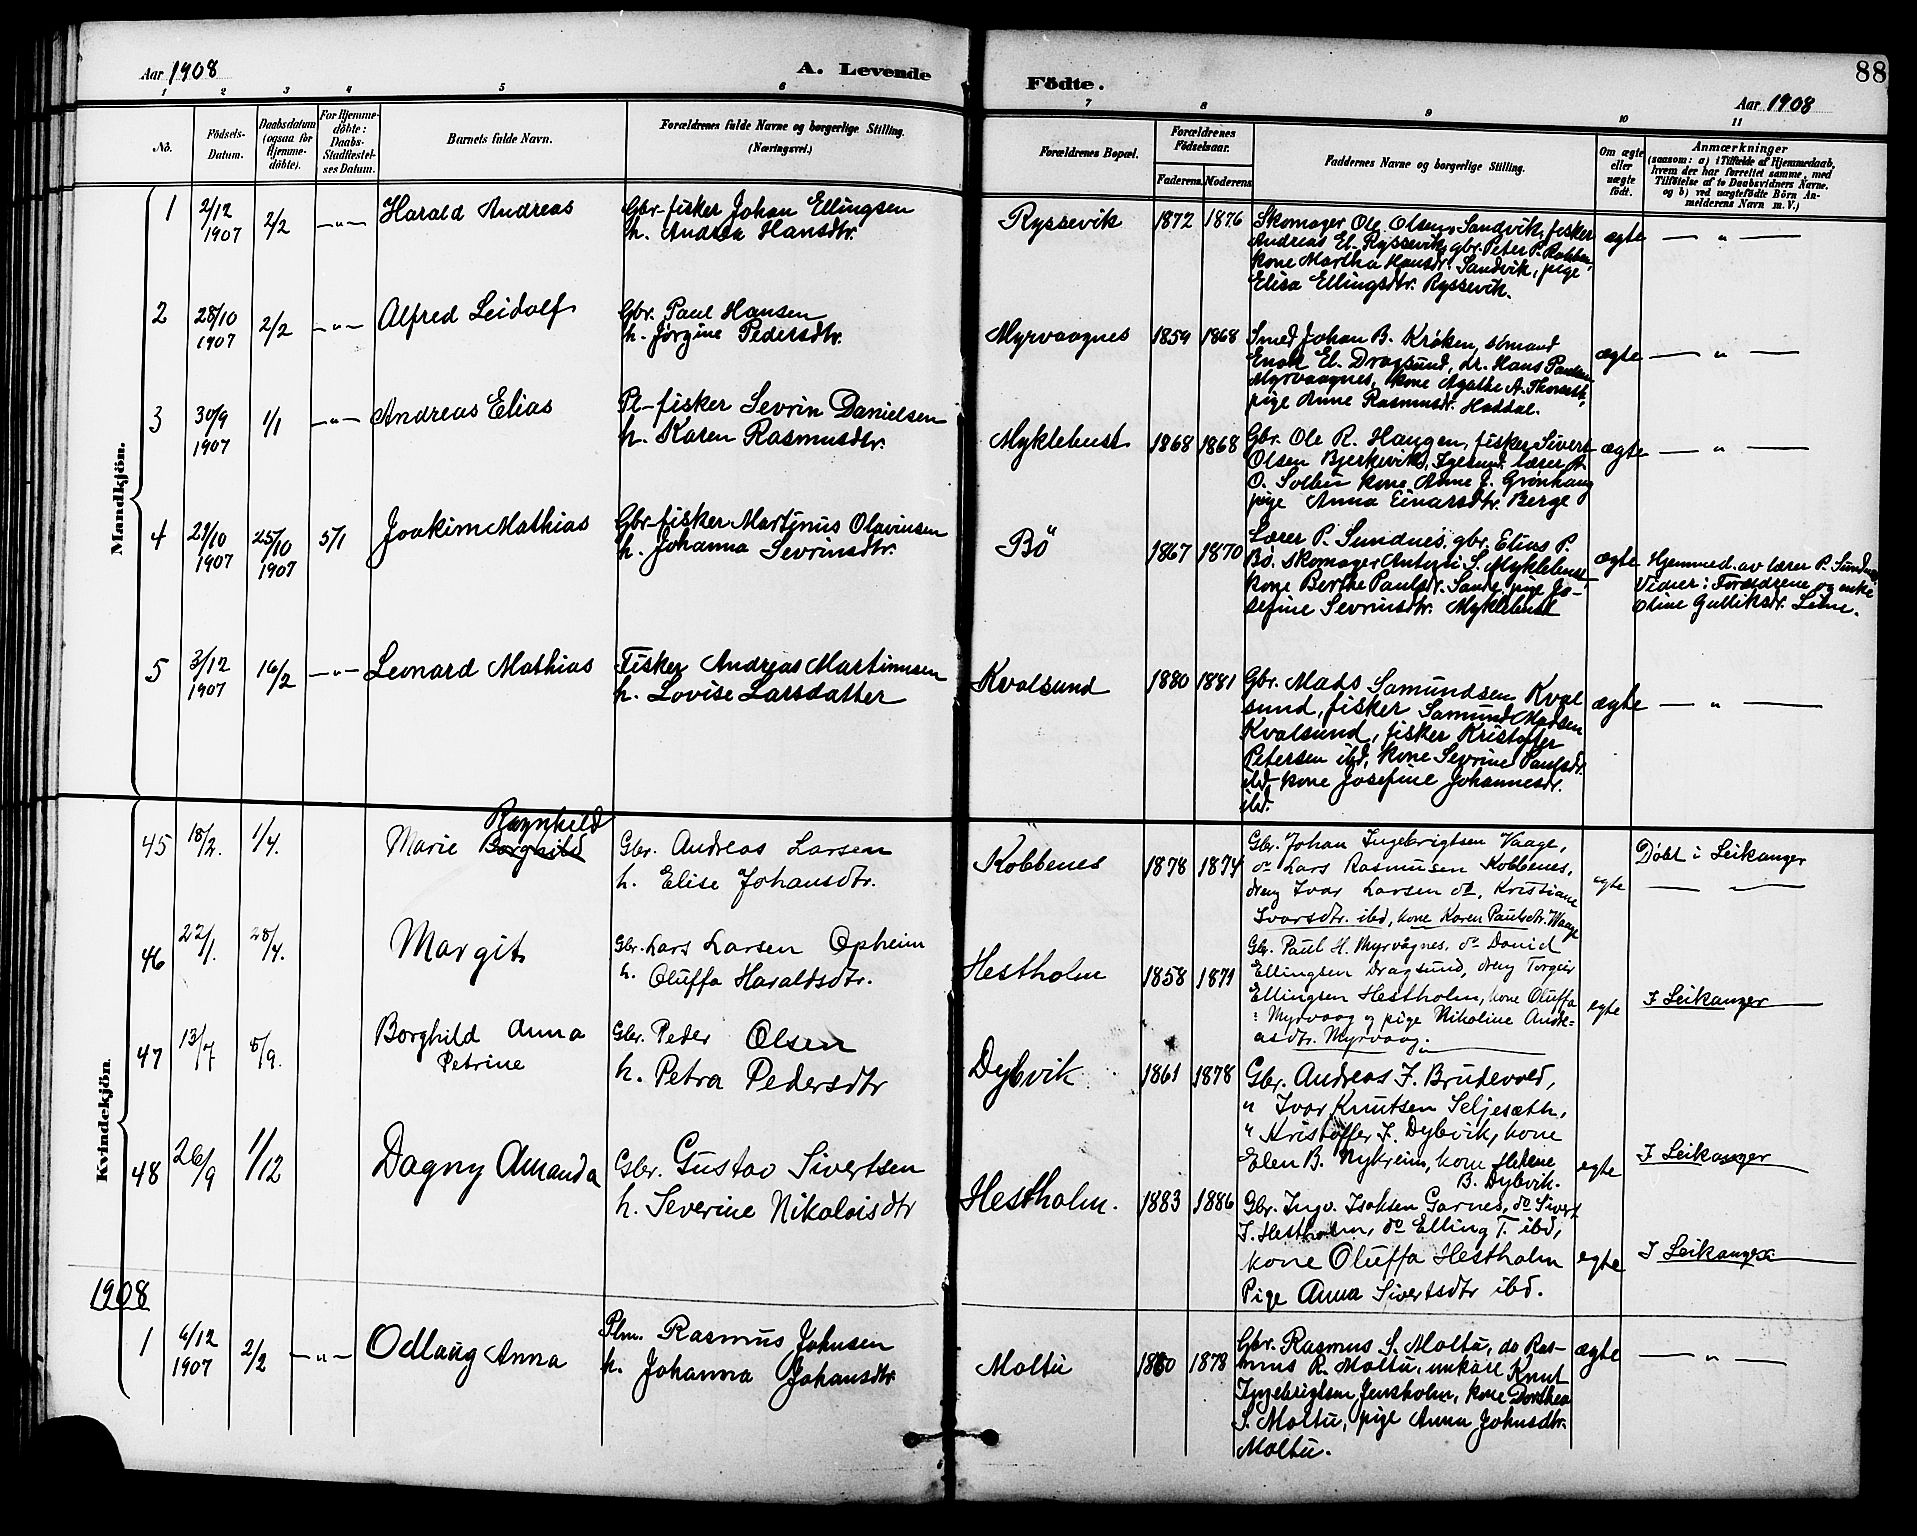 Aar 1908
A. Levende
Födte.
88
Aar 1908
1 2 3 4 5 6 7 8 9 10 11
No.
Födsels-
Datum.
Daabsdatum
(ogsaa for
Hjemme-
döbte).
For Hjemme-
döbte:
Daabs-
Stadfæstel-
ses Datum.
Barnets fulde Navn.
Forældrenes fulde Navne og borgerlige Stilling.
(Næringsvei.)
Forældrenes Bopæl.
Forældrenes
Födselsaar.
Faderens. Moderens.
Faddernes Navne og borgerlige Stilling.
Om ægte
eller
uægte
födt.
Anmærkninger
(saasom: a) i Tilfælde af Hjemmedaab,
hvem der har forrettet samme, med
Tilföielse af to Daabsvidners Navne.
og b) ved uægtefödte Börn An-
melderens Navn m. V.)
Mandkjön.
1 2/12 1907 2/2 — " — Harald Andreas
Gbr-fisker Johan Ellingsen
h. Andrea Hansdtr.
Ryssevik 1872 1876
Skomager Ole Olsen Sandvik, fisker
Andreas El. Ryssevik, gbr. Peter P.
kone Martha Hansdr. Sandvik, pige
Elisa Ellingsdtr. Ryssevik.
ægte — " —
2 28/10 1907 2/2 — " — Alfred Leidolf
Gbr. Paul Hansen
h. Jørgine Pedersdtr.
Myrvaagnes 1859 1868
Smed Johan B. Krøken, sömand
Enok El. Dragsund, dr. Hans Paulsen
Myrvaagnes, kone Agathe A.
pige Anne Rasmusdr. Haddal.
ægte — " —
3 30/9 1907 1/1 — " — Andreas Elias
Pl-fisker Sevrin Danielsen
h. Karen Rasmusdtr.
Myklebust 1868 1868
Gbr. Ole R. Haugen, fisker Sivert
Olsen Bjerkevik, lærer A.
O. kone Anne J. Grønhaug
pige Anna Einarsdtr. Berge
ægte — " —
4 21/10 1907 25/10 1907 5/1 Joakim Mathias
Gbr-fisker Martinus Olavinsen
h. Johanna Sevrinsdtr.
Bö 1867 1870
Lærer P. Sundnes, gbr. Elias P.
Bö, skomager Antoni S. Myklebust
kone Berthe Paulsdr. Sande, pige Jo-
sefine Sevrinsdtr. Myklebust
ægte
Hjemmed. av lærer P. Sundnes
Vidner: Forældrene og enke
Oline Gulliksdr.
5 3/12 1907 16/2 — " — Leonard Mathias
Fisker Andreas Martinusen
h. Lovise Larsdatter
Kvalsund 1880 1881
Gbr. Mads Samundsen Kval
sund, fisker Samund Madsen
Kvalsund, fisker Kristoffer
Petersen ibd, kone Sevrine Paulsdr.
ibd kone Josefine Johannesdr.
ibd.
ægte — " —
Kvindekjön
45 18/2. 1/4.
Ragnhild
Marie Borghild
Gbr. Andreas Larsen
h. Elise Johansdtr.
Kobbenes 1878 1874
Gbr. Johan Ingebrigtsen Vaage,
do Lars Rasmusen Kobbenes,
dreng Ivar Larsen do, Kristiane
Ivarsdtr. ibd, kone Karen Paulsdtr. Vaage
egte
Døbt i Leikanger
46 22/1. 28/4.
Margit
Gbr. Lars Larsen Opheim
h. Oluffa Haraldsdtr.
Hestholm 1858 1871
Gbr. Paul H. Myrvågnes, do David
Ellingsen Dragsund, dreng Torgeir
Ellingsen Hestholm, kone Oluffa
Myrvaag og pige Nikoline Andre-
asdtr. Myrvaag.
egte
I Leikanger
47 13/7 5/9.
Borghild Anna
Petrine
Gbr. Peder Olsen
h. Petra Pedersdtr
Dybvik 1861 1878
Gbr. Andreas J. Brudevold,
" Ivar Knutsen Seljesæth,
" Kristoffer J. Dybvik, kone
Elen B. Nykreim, kone Helene
B. Dybvik.
egte
I Leikanger
48 26/9 1/12
Dagny Amanda
Gbr. Gustav Sivertsen
h. Severine Nikolaisdtr
Hestholm. 1883 1886
Gbr. Ingv. Isaksen Garnes, do Sivert
J. Hestholm, do Elling T. ibd,
kone Oluffa Hestholm
Pige Anna Sivertsdtr ibd.
egte
I Leikanger
1908
1 6/12 1907 2/2 — " — Odlaug Anna
Plm. Rasmus Johnsen
h. Johanna Johansdtr.
Moltu 1880 1878
Gbr. Rasmus S. Moltu, do Ras-
mus R. Moltu, unkarl Knut
Ingebrigtsen Jensholm, kone Dorthea
S. Moltu, pige Anna Johnsdtr.
Moltu.
ægte — " —